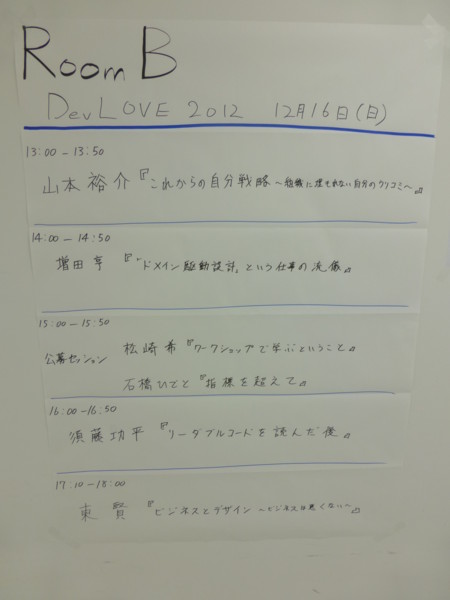 Room B
DevLOVE 2012 12月16日(日)
13:00 - 13:50
山本裕介『これからの自分戦略 ~組織に埋もれない自分のツリコミ~』
14:00 - 14:50
増田亨 『「ドメイン駆動設計」という仕事の流儀』
15:00 - 15:50
公募セッション 松崎希『ワークショップで学ぶということ』
石橋ひでと『指標を超えて』
16:00 - 16:50
須藤功平『リーダブルコードを読んだ後』
17:10 - 18:00
東 賢『ビジネスとデザイン ~ビジネスは悪くない~』